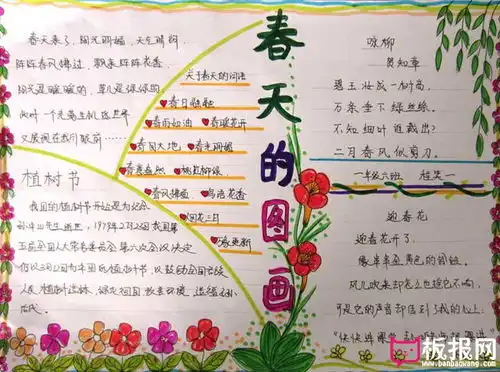 春天的图画
春天来了，阳光明媚，天气晴朗
阵阵春风拂过，飘来阵阵花香
阳光是暖暖的，草儿是绿绿的
又展现在我们眼前……
关于春天的词语
春日融融
春雨如油
春暖花开
春回大地
春光明媚
春意盎然
桃红柳绿
春风拂面
鸟语花香
烟花三月
万象更新
植树节
我国的植树节开始是为纪念
孙中山先生逝世，1979年2月23日我国第
五届全国人大常务委员会第六次会议决定
仍以3月12日为中国的植树节，以鼓励全国各族
人民植树造林，绿化祖国，改善环境，造福子孙
后代。
咏柳
贺知章
碧玉妆成一树高，
万条垂下绿丝绦。
不知细叶谁裁出？
二月春风似剪刀。
一年级六班
迎春花
迎春花开了，
像串串金黄色的铃铛，
风儿吹来却怎么也摇它不响！
可是它的声音却传到了我的心上：
板报网
www.banbaowang.com